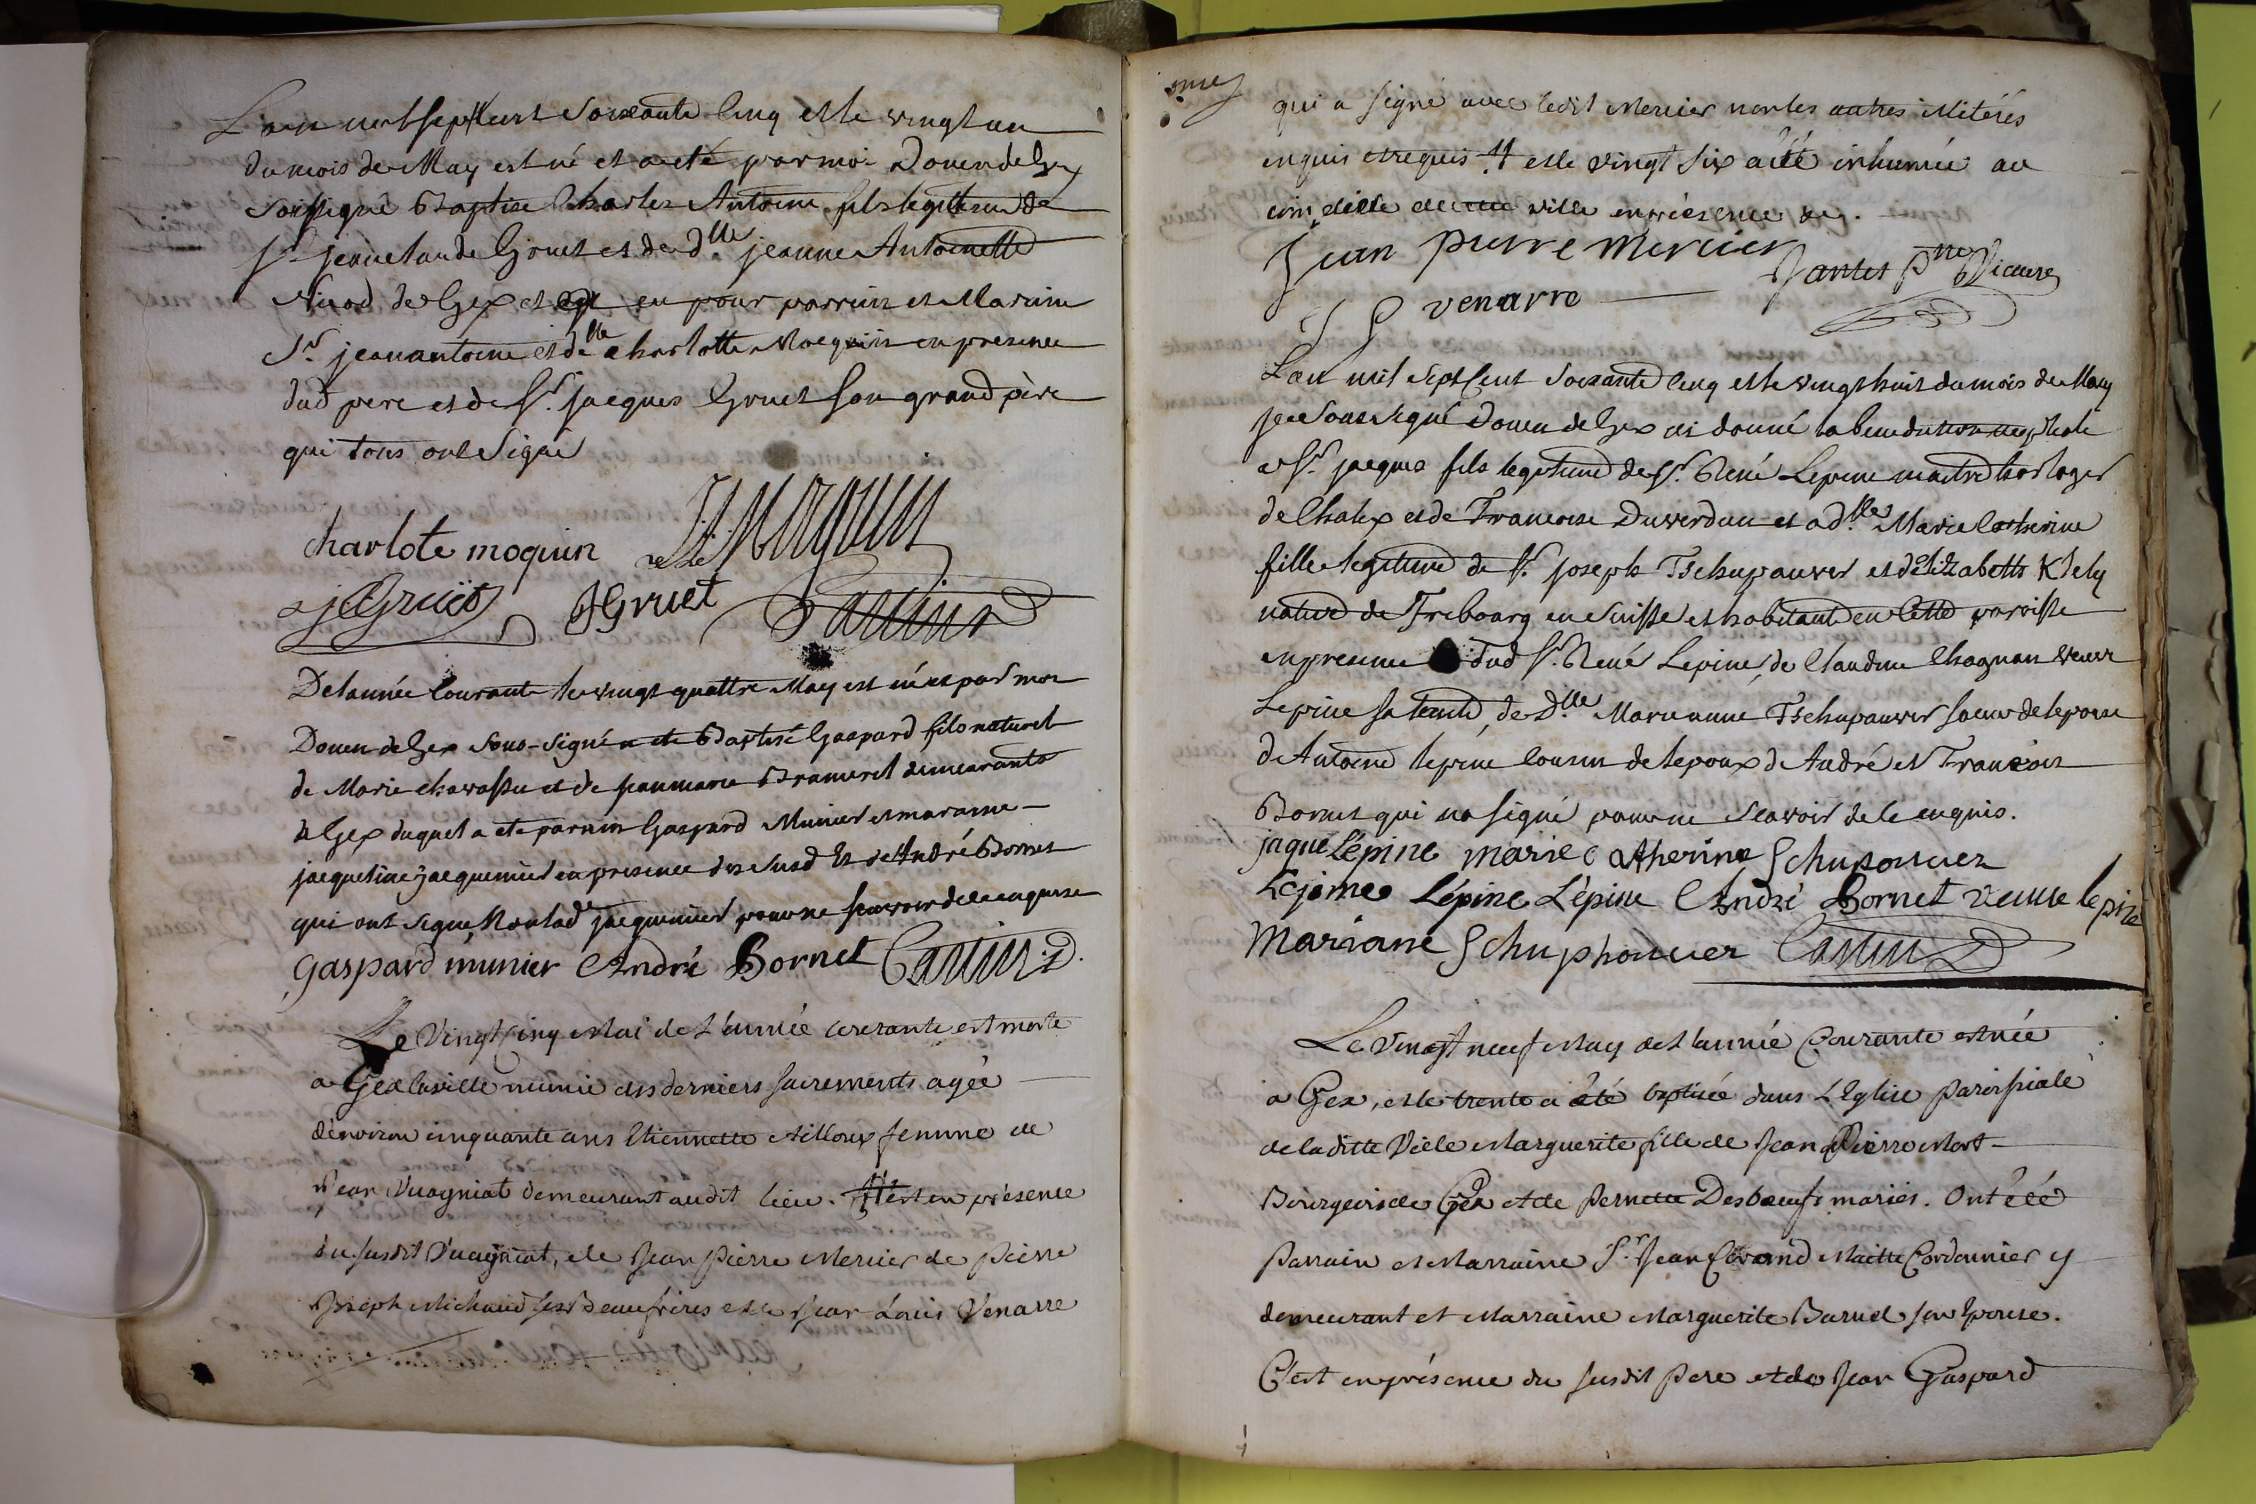 L'an mil sept cent soixante cinq et le vingt un
du mois de May est né et a eté par moi Doien de Gex
soussigné Baptisé Charles Antoine fils legitime de
Sr jean claude Gruet et de dlle jeanne Antoinette
Nicod de Gex et a eu pour parrain et Maraine
Sr jean antoine et dlle charlotte Moquin en presence
dud pere et de Sr jacques Gruet son grand père
qui tous ont signé
charlote moquin
JCGruet JGruet Castin D
De l'année courante le vingt quattre May est né et par moi
Doien de Gex sous-signé a ete Baptisé Gaspard fils naturel
de Marie chavassu et de jean marie demeurants
a Gex duquel a ete parrain Gaspard Munier et maraine
jacqueline jacquemier en presence des susd et de André Bornet
qui ont signe Non lade jacquemier pour ne scavoir de ce enquise
gaspard munier André Bornet Castin D.
Le Vingt cinq Mai de l'année courante est morte
a Gex la ville munie des derniers sacrements agée
d'environ cinquante ans Etiennette Ailloux femme de
Jean Vuagniat demeurant audit lieu. C'est en présence
du susdit Vuagniat, de Jean Pierre Mercier de Pierre
Joseph Michaud ses Beaufrères et de Jean Louis Venarre
qui a signé avec ledit Mercier non les autres illiterés
enquis et requis et le vingt six a été inhumée au
cimetière de cette ville en présence
Jean pierre mercier
Pantet Vicaire
J L venarre
L'an mil sept Cent soixante cinq et le vingt huit du mois de May
je soussigné Doien de Gex ai donné la benediction nuptiale
a Sr jacques fils legitime de Sr René Lepine maitre horloger
de Chalex et de Francoise Duverdun et a dlle Marie Catherine
fille legitime de Sr joseph Tschupauver et d'Elizabeth Klely
native de Fribourg en Suisse et habitante en Cette paroisse
en presence dud Sr René Lepine, de Claudine Chagnan veuve
Lepine sa tante, de Dlle Marie anne Tschupauver soeur de lepouse
de Antoine lepine cousin de lepoux de André et Francois
Bornet qui na signé pour ne scavoir de ce enquis.
jaque Lépine marie catherine Schupouuer
Lépine Lépine André Bornet veuve lepine
Mariane Schuphouuer Castin D
Le Vingt neuf May de l'année Courante est née
a Gex, et le trente a été baptisée dans l'Eglise paroissiale
de laditte Ville Marguerite fille de Jean Pierre Mort
Bourgeois de Gex et de Pernette Desboeufs mariés. Ont été
Parrain et Marraine Sr Jean Maitre Cordonnier y
demeurant et Marraine Marguerite Buruel son Epouse.
C'est en présence du susdit Pere et de Jean Gaspard